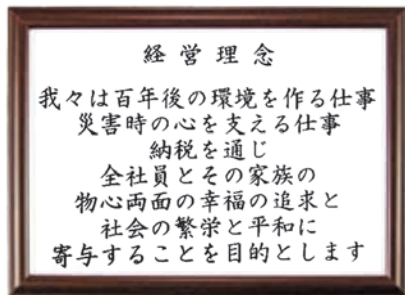 経営理念
我々は百年後の環境を作る仕事
災害時の心を支える仕事
納税を通じ
全社員とその家族の
物心両面の幸福の追求と
社会の繁栄と平和に
寄与することを目的とします